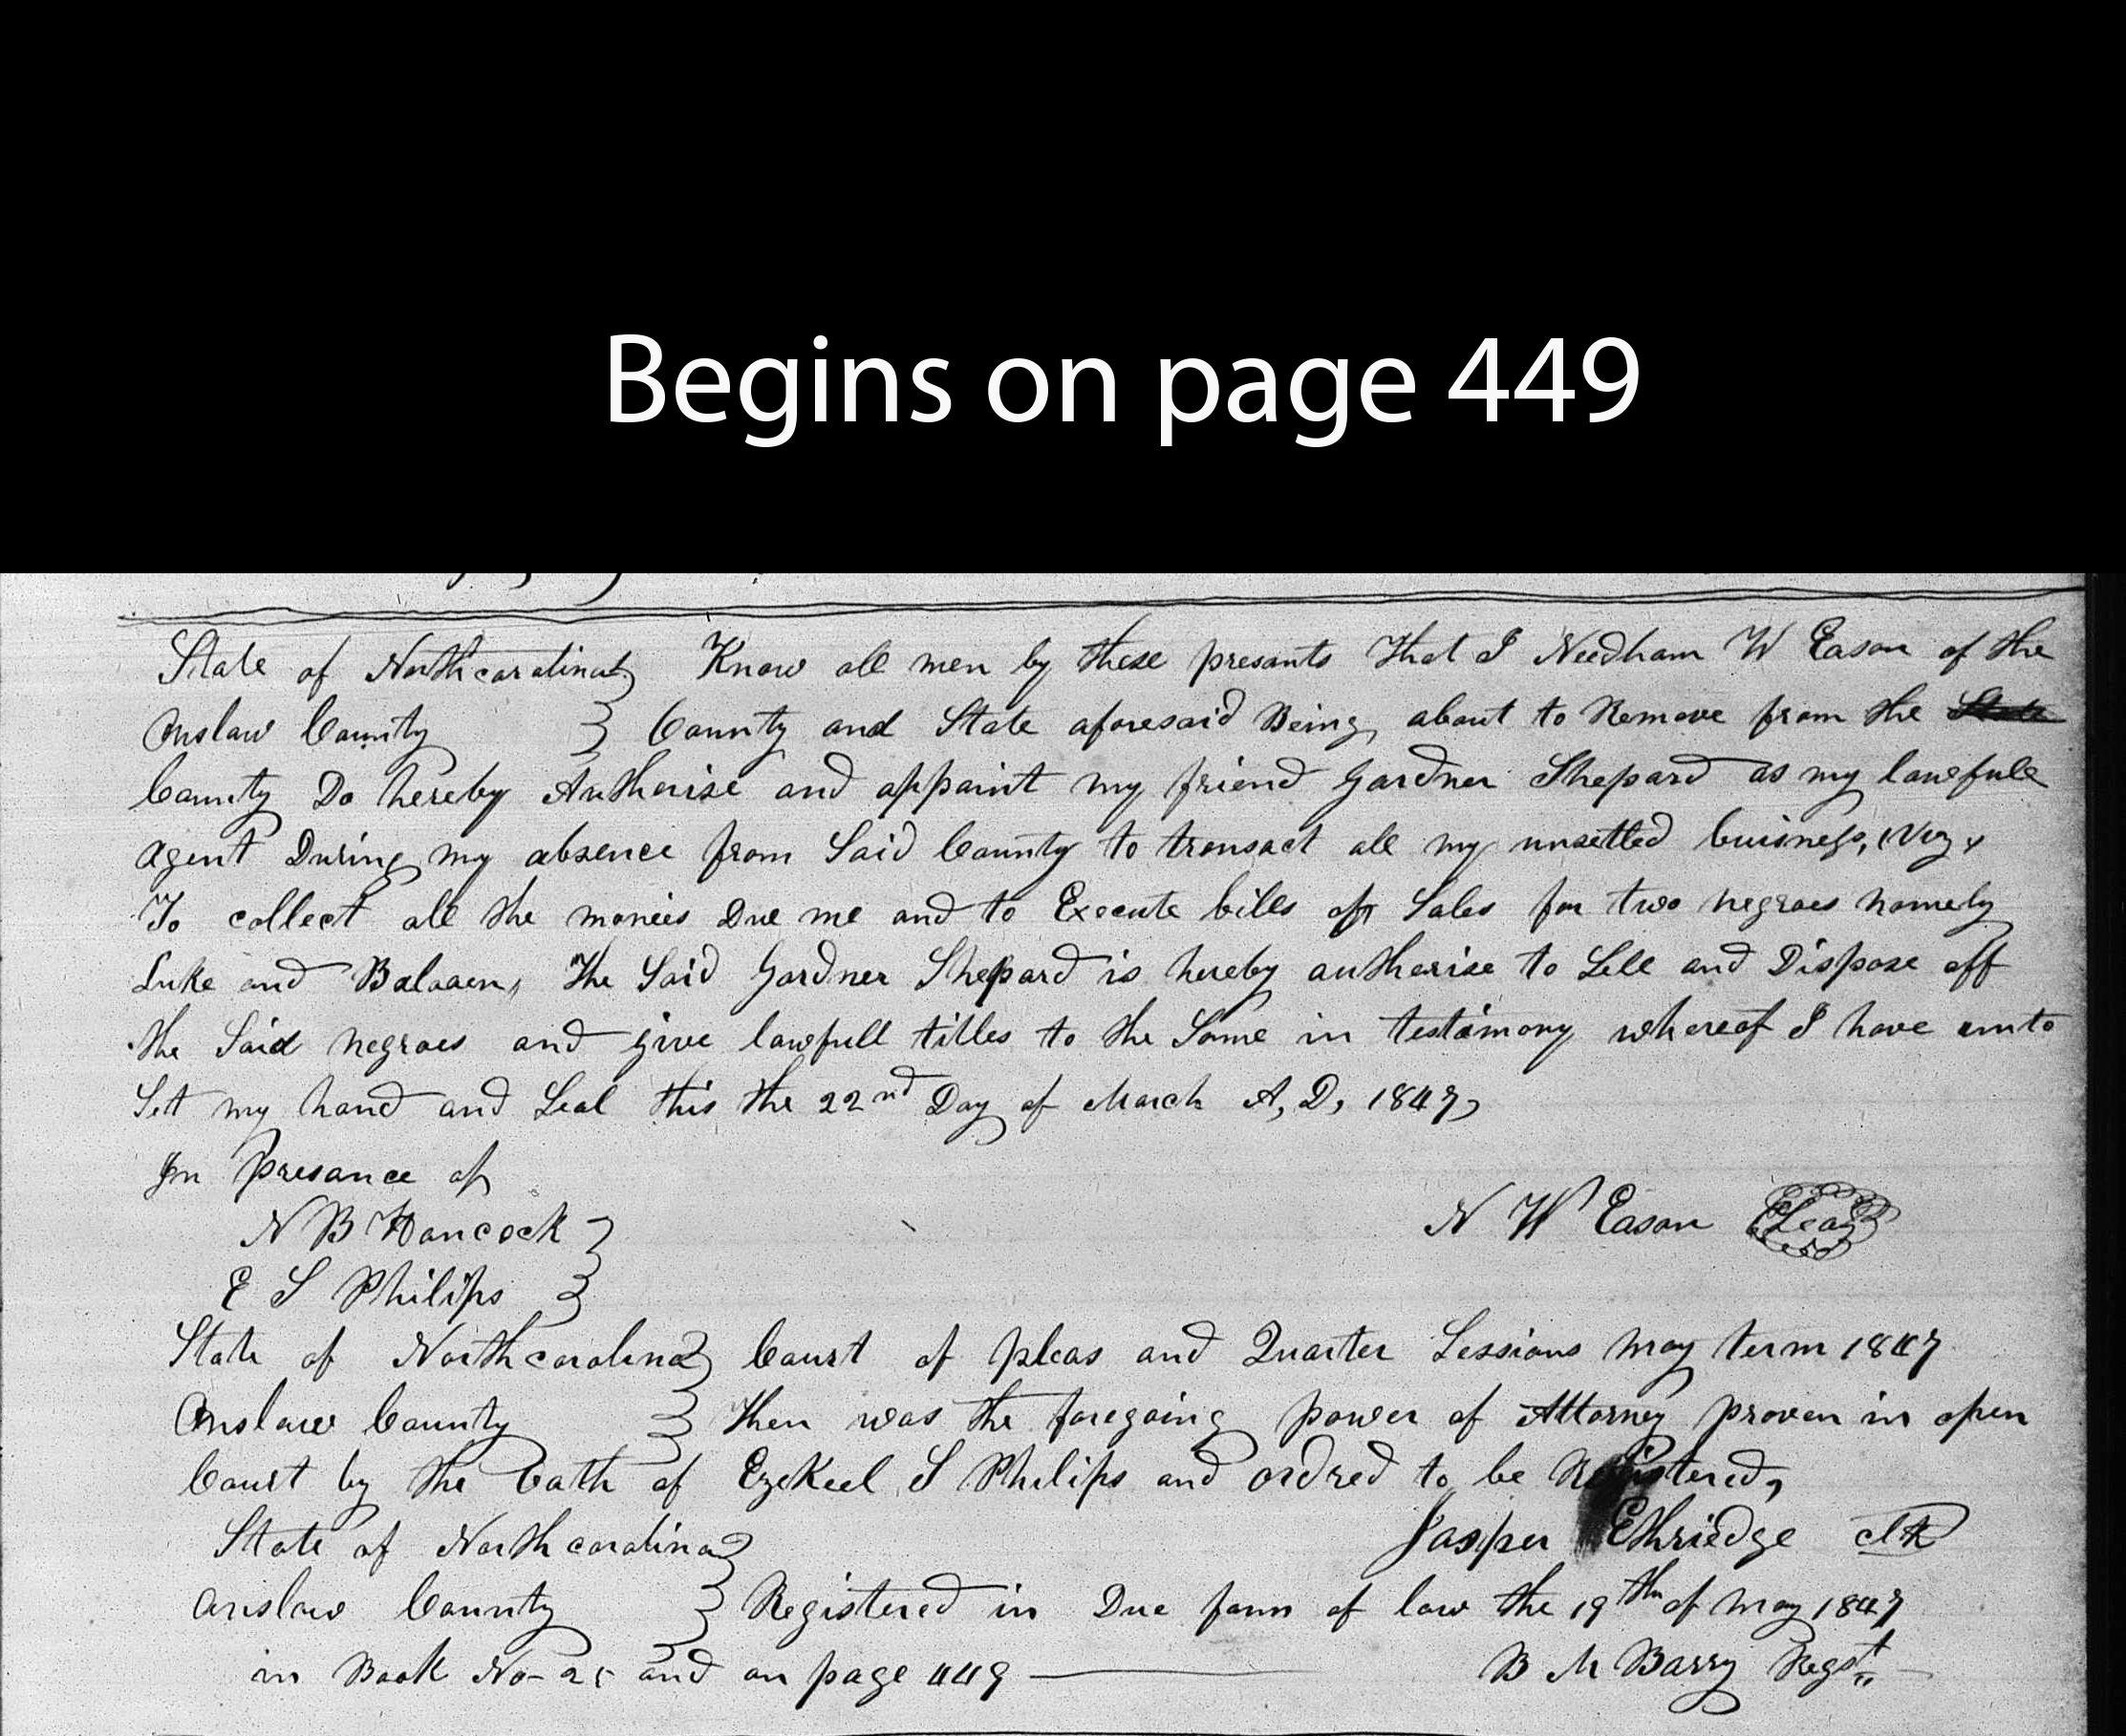 Begins on page 449
State of Northcarolina Know all men by these presants That I Needham W Eason of the
Onslow County County and State aforesaid Being about to Remove from the State
County Do hereby Autherise and appoint my friend Gardner Shepard as my lawfull
Agent During my absence from Said County to transact all my unsetled buisness,
To collect all the monies Due me and to Execute bills off Sales for two negroes namely
Luke and The Said Gardner Shepard is hereby autherise to Sell and Dispose off
the Said negroes and give lawfull titles to the Same in testimony whereof I have unto
Sett my hand and Seal this the 22nd Day of March A, D, 1847,
In Presance of
N B Hancock
N W Eason Seal
E S Philips
State of Northcarolina Court of pleas and Quarter Sessions May term 1847
Onslow County Then was the foregoing power of Attorney proven in open
Court by the Oath of Ezekeel S Philips and ordred to be Registered,
State of Northcarolina Jasper Ethriedge Clk
Onslow County Registered in Due form of law the 19th of May 1847
in Book No- 25 and on page 449 B M Barry Regst